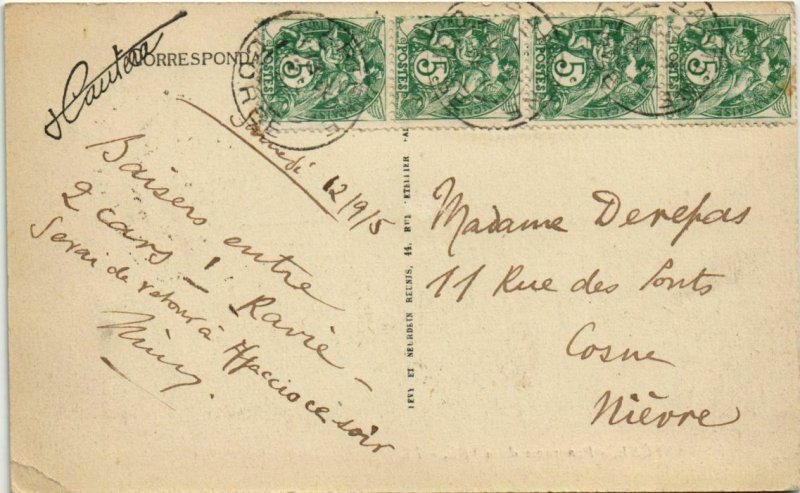 CORRESPONDA
Samedi 12/9/5
Baisers entre
2 cars! Ravie –
Serai de retour à Ajaccio ce soir
LEVY ET NEURDEIN REUNIS, 44, RUE LETELLIER
Madame Derepas
11 Rue des Ponts
Cosne
Nièvre
5c POSTES
5c POSTES
5c POSTES
5c POSTES
CORSE